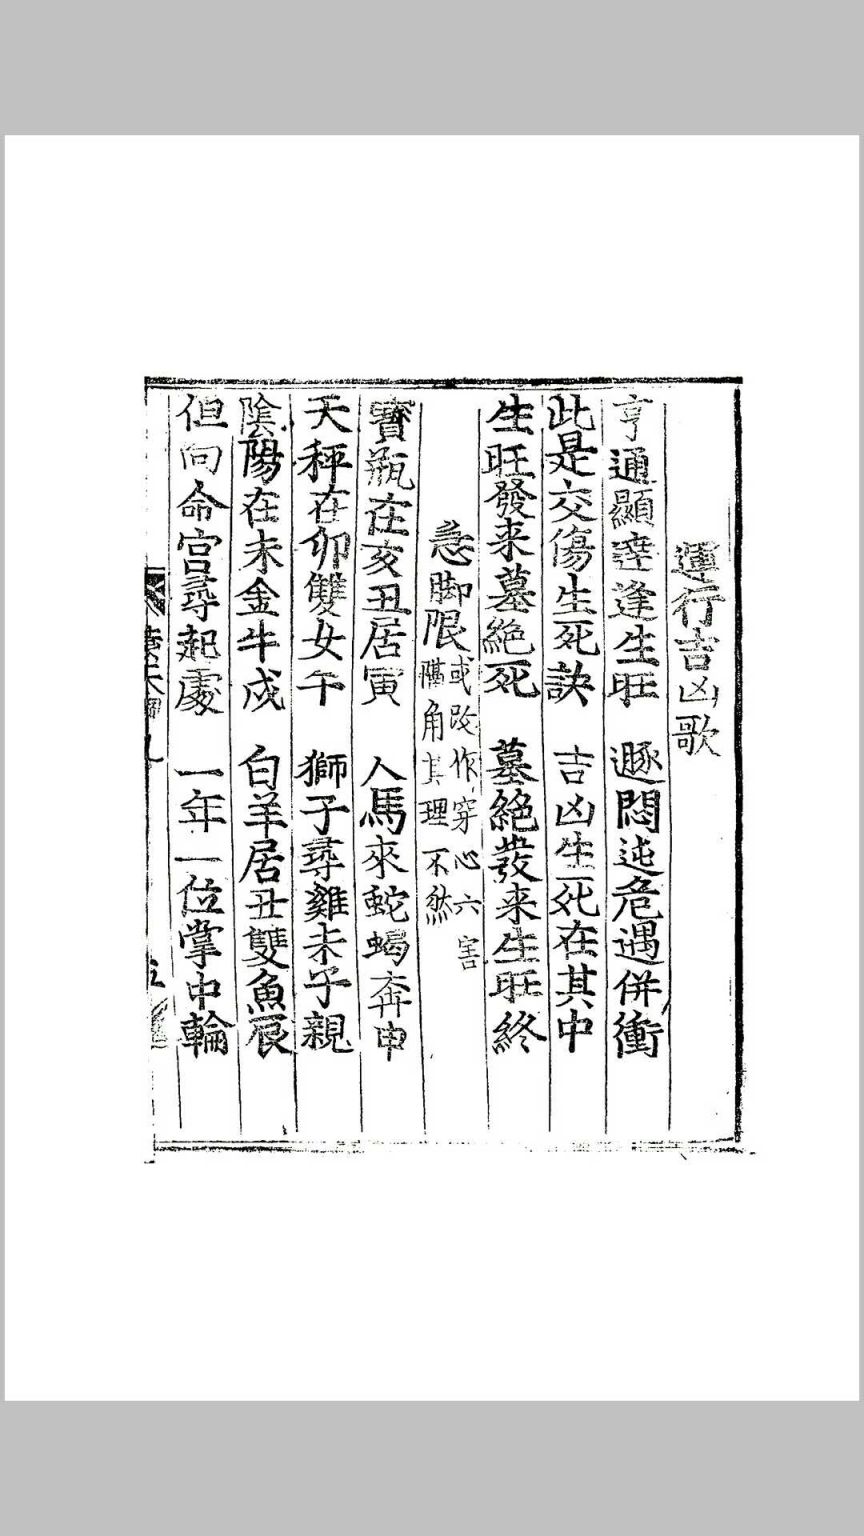 運行吉凶歌
亨通顯達逢生旺 遯悶迍危遇併衝
此是交傷生死訣 吉凶生死在其中
生旺發来墓絕死 墓絕發来生旺終
急脚限 或改作穿心六害 隔角其理不然
寳瓶在亥丑居寅 人馬來蛇蝎奔申
天秤在卯雙女午 獅子尋雞未子親
陰陽在未金牛戌 白羊居丑雙魚辰
但向命宮尋起處 一年一位掌中輪